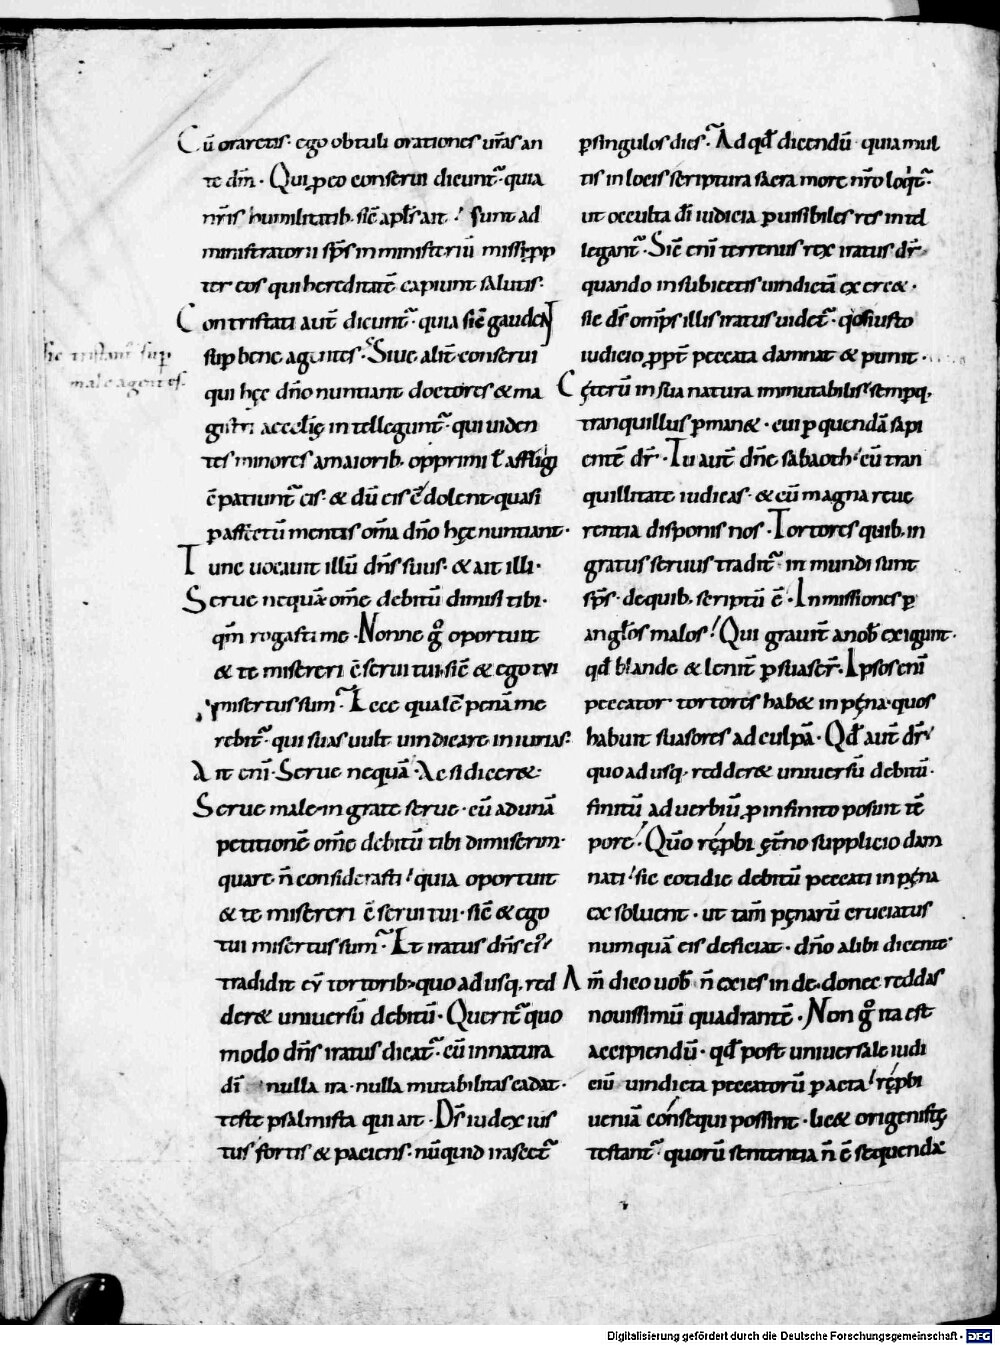 Cū oraretis· ego obtuli orationes ur̄as an
te dm̄· Qui ꝑ eo conserui dicunt᷑· quia
nr̄is humilitatib· sic̄ apl̄s ait! sunt ad
ministratorii sp̄s in ministeriū missi ꝓp
ter eos qui hereditatē capiunt salutis·
Contristati aut̄ dicunt᷑· quia sic̄ gaudent
suꝑ bene agentes· Siue alit̄ conserui
hic tristant᷑ suꝑ
male agentes·
qui hęc dn̄o nuntiant doctores & ma
gistri accclię intelleguntur· qui uiden
tes minores a maiorib· opprimi l̄ affligi
c̄patiunt᷑ eis· & dū eis c̄dolent quasi
ꝑ affectū mentis om̄a dn̄o hęc nuntiant·
Tunc uocauit illū dn̄s suus· & ait illi·
Serue nequā om̄e debitū dimisi tibi·
qm̄ rogasti me· Nonne gͦ oportuit
& te misereri c̄serui tui· sic̄ & ego tui
misertus sum᷑· Ecce qualē penā me
rebit᷑· qui suas uult uindicare iniurias·
Ait eni· Serue nequā· Ac si diceret·
Serue male· ingrate serue· cū ad unā
petitionē om̄e debitū tibi dimiserim·
quare n̄ considerasti! quia oportuit
& te misereri c̄serui tui· sic̄ & ego
tui misertus sum᷑· Et iratus dn̄s ei᷒
tradidit eū tortorib· quo ad usq· red
deret uniuersū debitū· Querit᷑ quo
modo dn̄s iratus dicat᷑· cū in natura
dī nulla ira· nulla mutabilitas cadat·
teste psalmista qui ait· Ds̄ iudex ius
tus fortis & paciens· nūquid irascet᷑
ꝑ singulos dies᷑· Ad qd̄ dicendū· quia mul
tis in locis scriptura sacra more nr̄o loqit᷑·
ut occulta dī iudicia ꝑ uisibiles res intel
legant᷑· Sic̄ eni terrenus rex iratus dr̄·
quando in subiectis uindictā exercet·
sic ds̄ omp̄s illis iratus uidet᷑· qͦs iusto
iudicio ꝓpt̄ peccata damnat & punit·
Cęterū in sua natura immutabilis! semꝑq·
tranquillus ꝑmanet· cui ꝑ quendā sapi
entē dr̄· Tu aut̄ dn̄e sabaoth! cū tran
quillitate iudicas· & cū magna reue
rentia disponis nos· Tortores quib· in
gratus seruus tradit᷑· inmundi sunt
sp̄s· de quib· scriptū ē· Inmissiones ꝑ
anglōs malos! Qui grauit̄ a nob̄ exigunt·
qd̄ blande & lenit̄ ꝑsuaser̄· Ipsos eni
peccator tortores habet in pęna· quos
habuit suasores ad culpā· Qd̄ aut̄ dr̄!
quo ad usq· redderet uniuersū debitū·
finitū aduerbiū ꝓ infinito posuit tē
pore! Quō rępbi ęt̄no supplicio dam
nati! sic cotidie debitū peccati in pęna
exsoluent· ut tam̄ pęnarū cruciatus
numquā eis deficiat· dn̄o alibi dicente·
Am̄ dico uob̄ n̄ exies inde· donec reddas
nouissimū quadrantē· Non gͦ ita est
accipiendū· qd̄ post uniuersale iudi
ciū uindicta peccatorū ꝑacta! rępbi
ueniā consequi possint· licet origenistę
testant᷑· quorū sententia n̄ ē sequenda
Digitalisierung gefördert durch die Deutsche Forschungsgemeinschaft - DFG